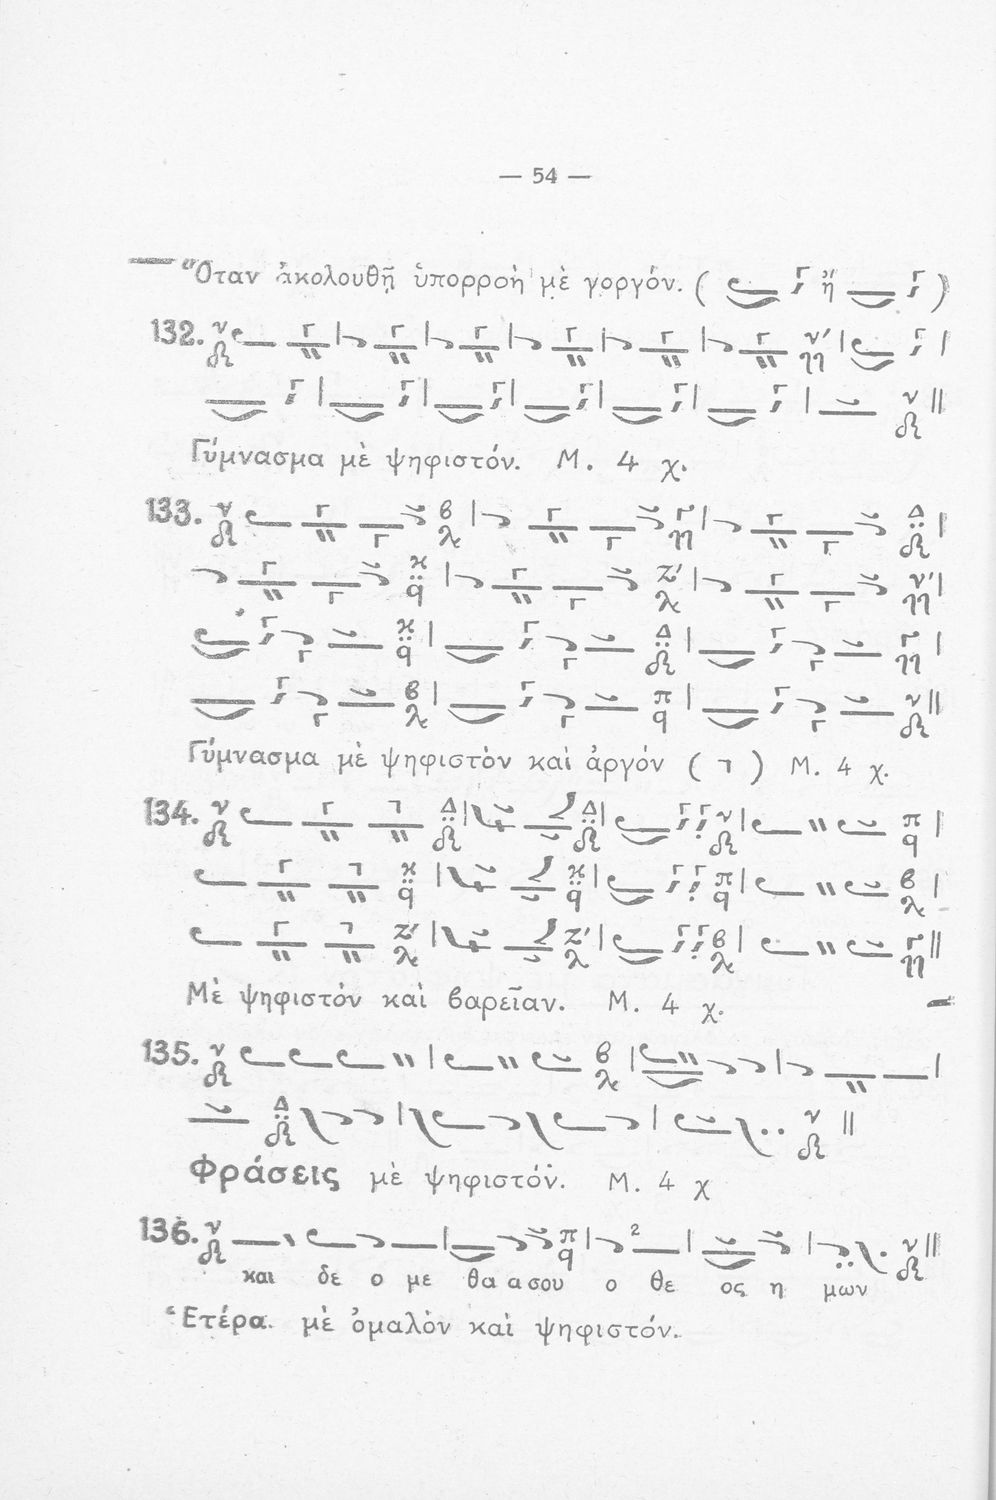 — 54 —
Ὅταν ἀκολουθῇ ὑπορροὴ μὲ γοργόν. ( ἢ )
132. ν
ν
Γύμνασμα μὲ ψηφιστόν. Μ. 4 χ.
133. ν β Γ Δ
ϰ Ζ΄ ν΄
ϰ Δ Γ
β π ν
Γύμνασμα μὲ ψηφιστὸν καὶ ἀργόν ( ) Μ. 4 χ.
134. ν Δ Δ ν π
ϰ ϰ π β
Ζ΄ Ζ΄ β Γ
Μὲ ψηφιστόν καὶ βαρεῖαν. Μ. 4 χ.
135. ν β
Δ ν
Φράσεις μὲ ψηφιστόν. Μ. 4 χ
136. ν π 2 ν
και δε ο με θα α σου ο θε ος η μων
Ἑτέρα. μὲ ὁμαλὸν καὶ ψηφιστόν.